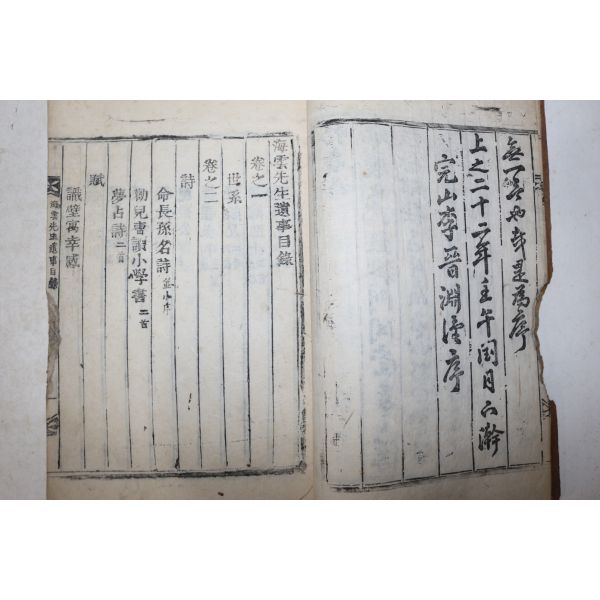 無一善也哉是爲序
上之二十二年壬午閏月下澣
完山李晉淵謹序
海雲先生遺事目錄
卷之一
世系
卷之二
詩
命長孫名詩 並小序
勖兒曹讀小學書 二首
夢占詩 二首
賦
識壁寓幸感
海雲先生遺事目錄